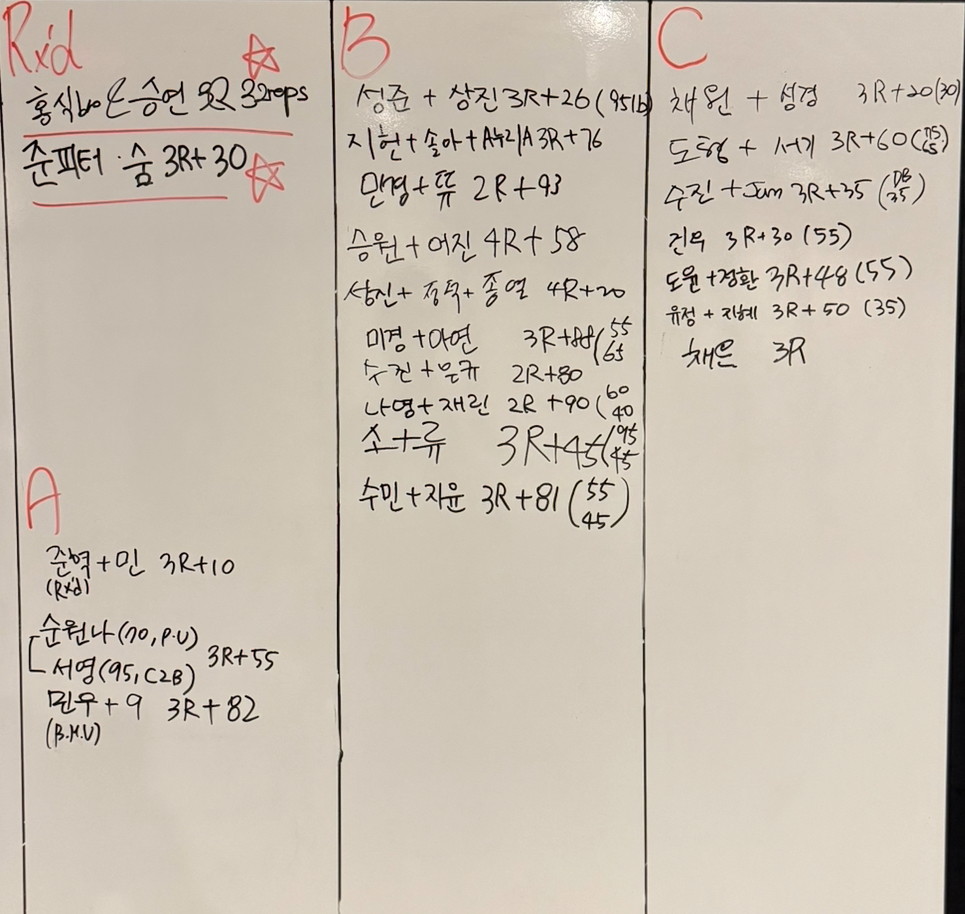 Rx'd
홍식bo & 승연 5R 32reps
준피터 · 숨 3R+30
A
준혁+민 3R+10
(Rx'd)
순원나(70, P.U)
서영(95, C2B) 3R+55
민우+9 3R+82
(B.M.U)
B
성준 + 상진 3R+26 (95lb)
지현+솔아+A누리A 3R+76
민경+뜌 2R+93
승원+어진 4R+58
상진+정덕+종열 4R+20
미경+아연 3R+88(55
65
수진+은규 2R+80
나영+재린 2R+90(60
40
소+류 3R+45(95
45
수민+지윤 3R+81(55
45)
C
채원 + 성경 3R+20(30)
도형 + 서기 3R+60(75
65)
수진+Jam 3R+35(DB
35)
건우 3R+30 (55)
도윤+경환 3R+48(55)
유정+지혜 3R+50 (35)
채은 3R